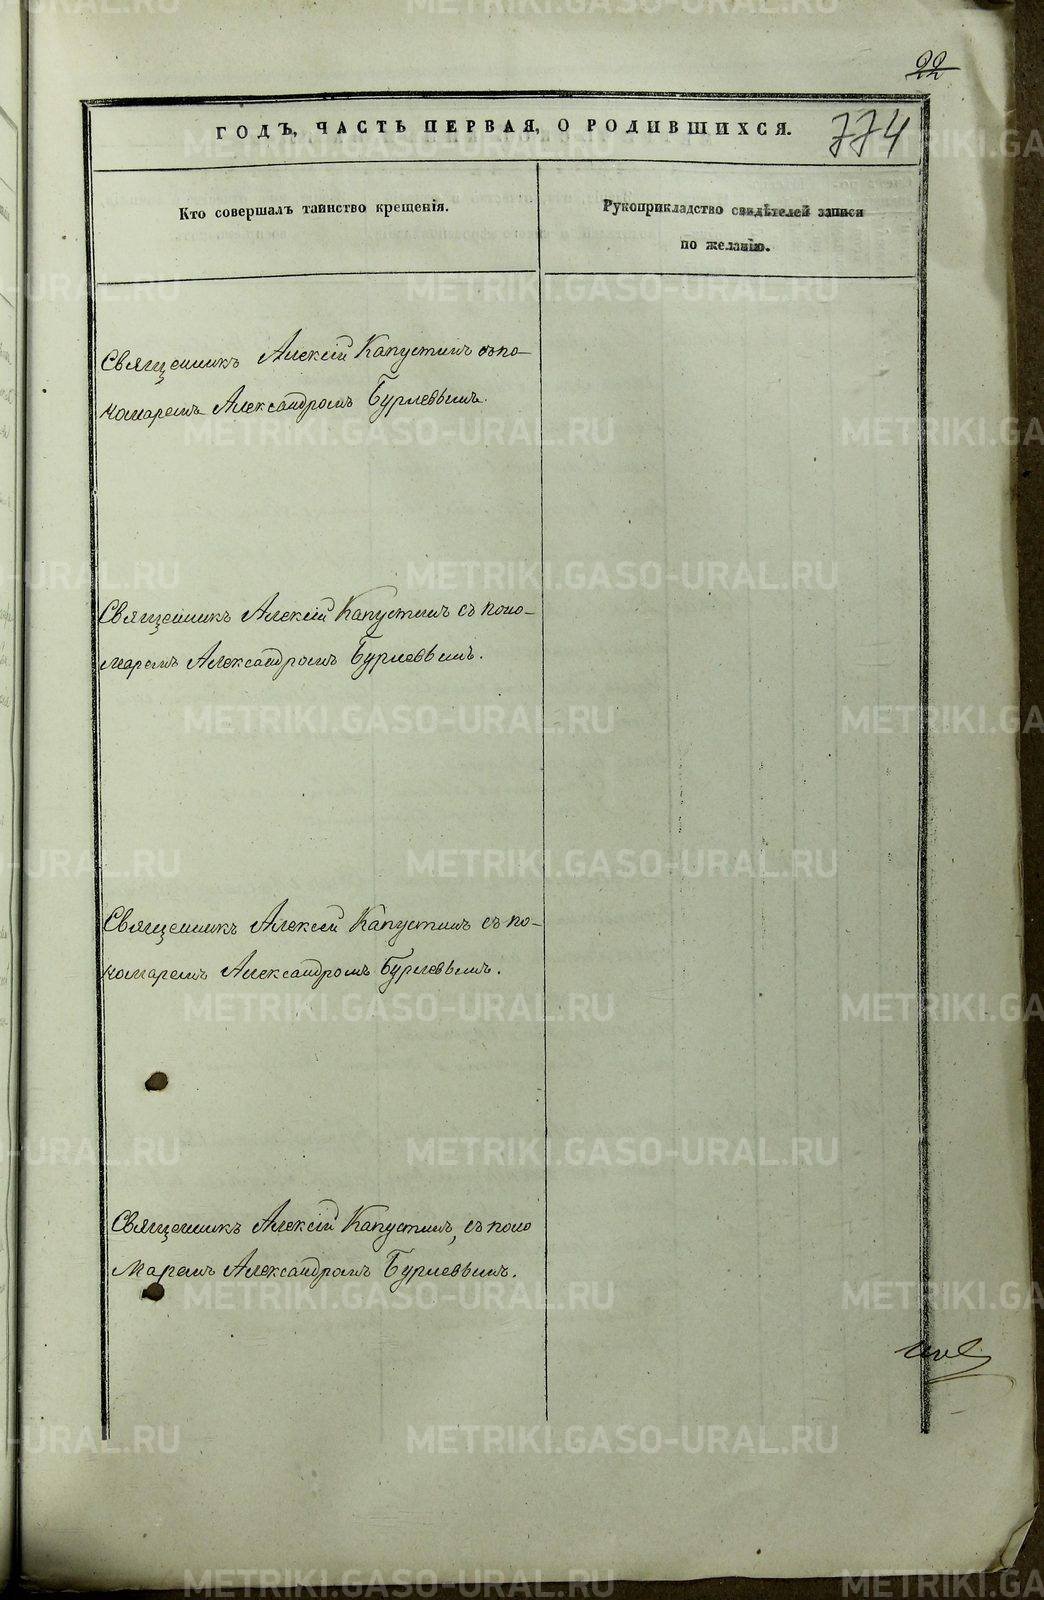 22
ГОДЪ, ЧАСТЬ ПЕРВАЯ, О РОДИВШИХСЯ.
774
Кто совершалъ таинство крещенія.
Рукоприкладство свидѣтелей записи
по желанію.
Священникъ Алексій Капустинъ съ по-
номаремъ Александромъ Бурлевымъ.
Священникъ Алексій Капустинъ съ поно-
маремъ Александромъ Бурлевымъ.
Священникъ Алексій Капустинъ съ по-
номаремъ Александромъ Бурлевымъ.
Священникъ Алексій Капустинъ, съ поно
маремъ Александромъ Бурлевымъ.
METRIKI.GASO-URAL.RU